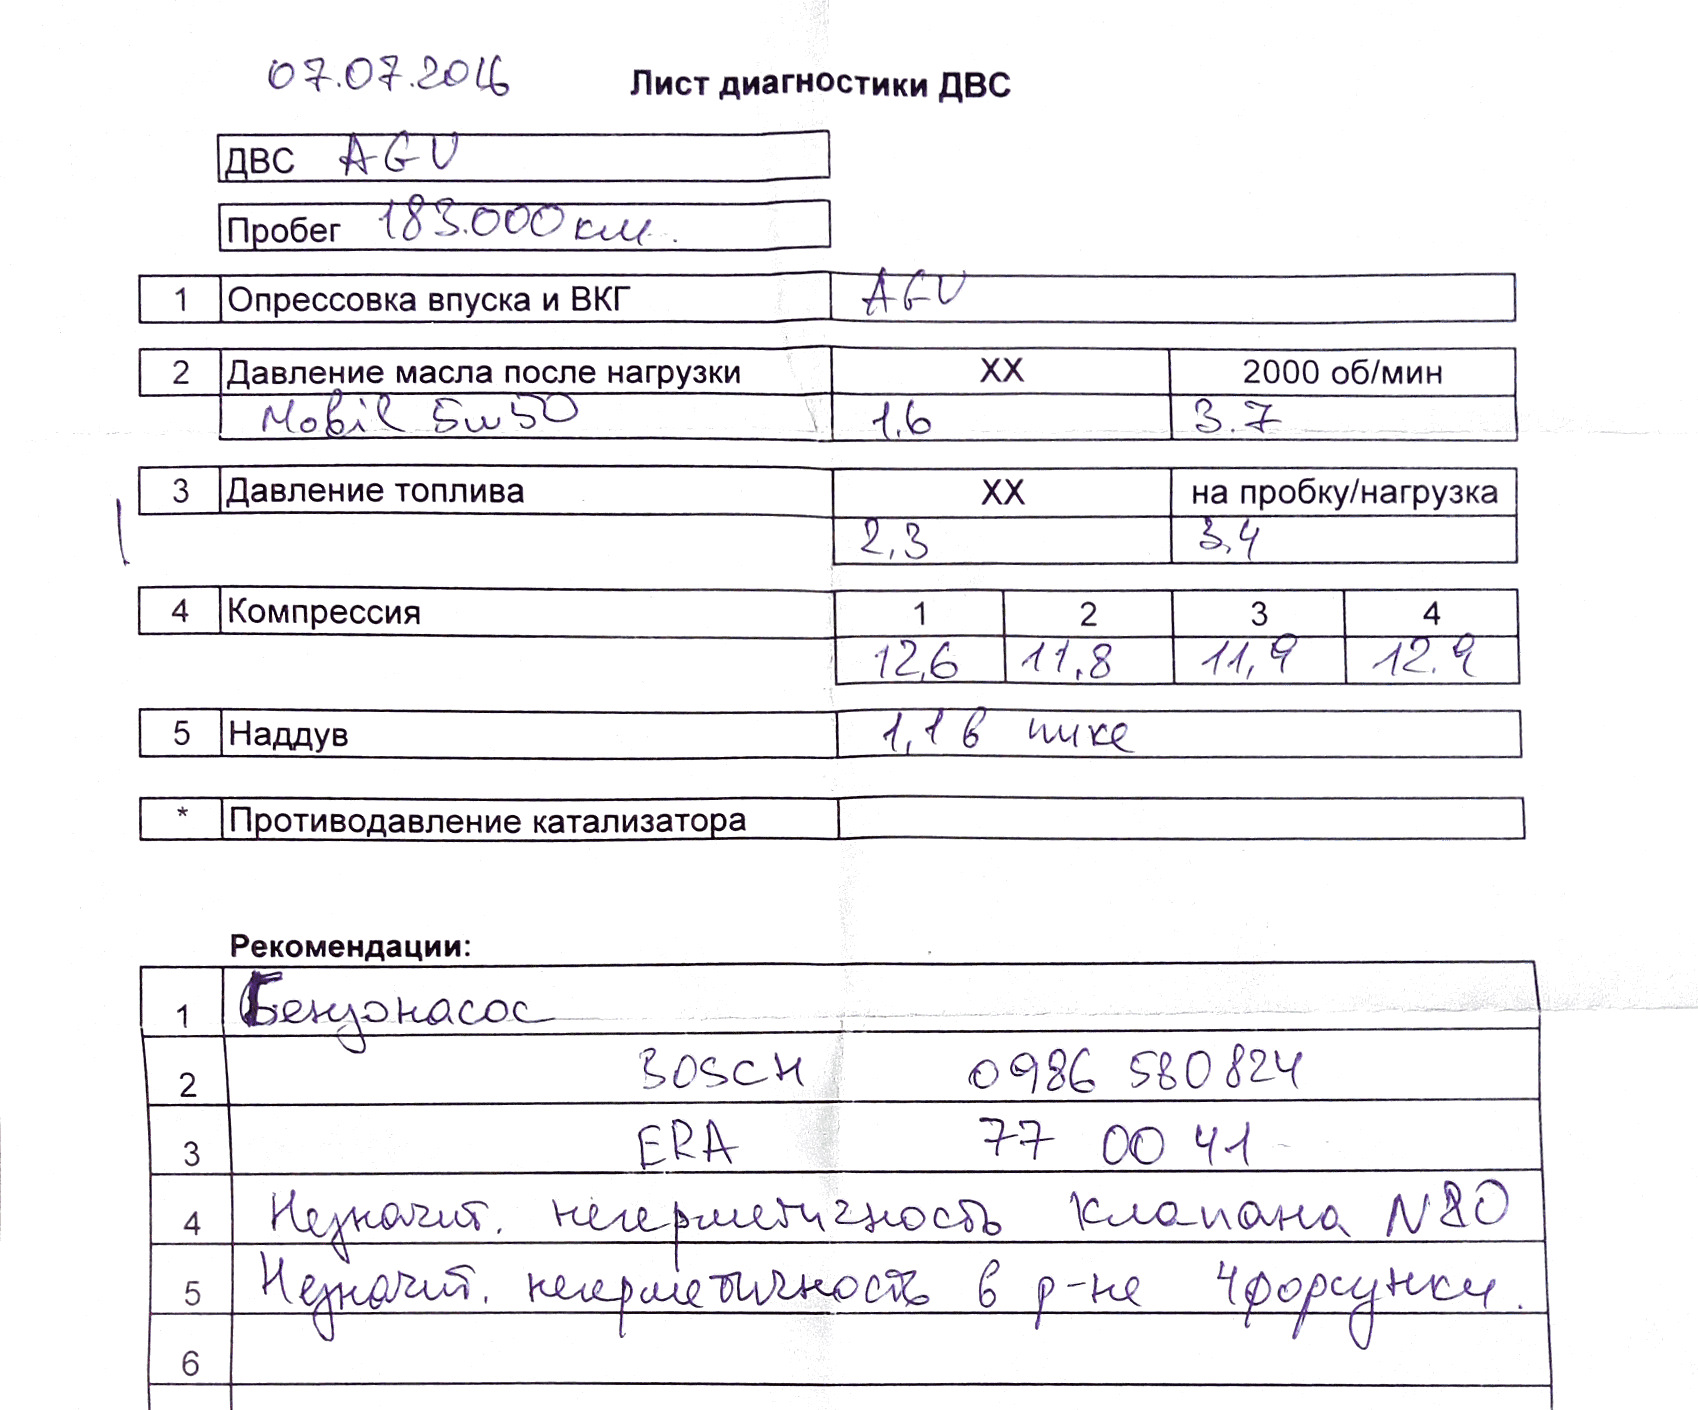 07.07.2016 Лист диагностики ДВС
ДВС AGU
Пробег 183.000 км.
1 Опрессовка впуска и ВКГ AGU
2 Давление масла после нагрузки ХХ 2000 об/мин
Mobil 5w50 1.6 3.7
3 Давление топлива ХХ на пробку/нагрузка
2,3 3,4
4 Компрессия 1 2 3 4
12,6 11,8 11,9 12.9
5 Наддув 1,1 в пике
* Противодавление катализатора
Рекомендации:
1 Бензонасос
2 BOSCH 0986 580824
3 ERA 77 00 41
4 Незначит. негерметичность клапана N80
5 Незначит. негерметичность в р-не 4 форсунки.
6